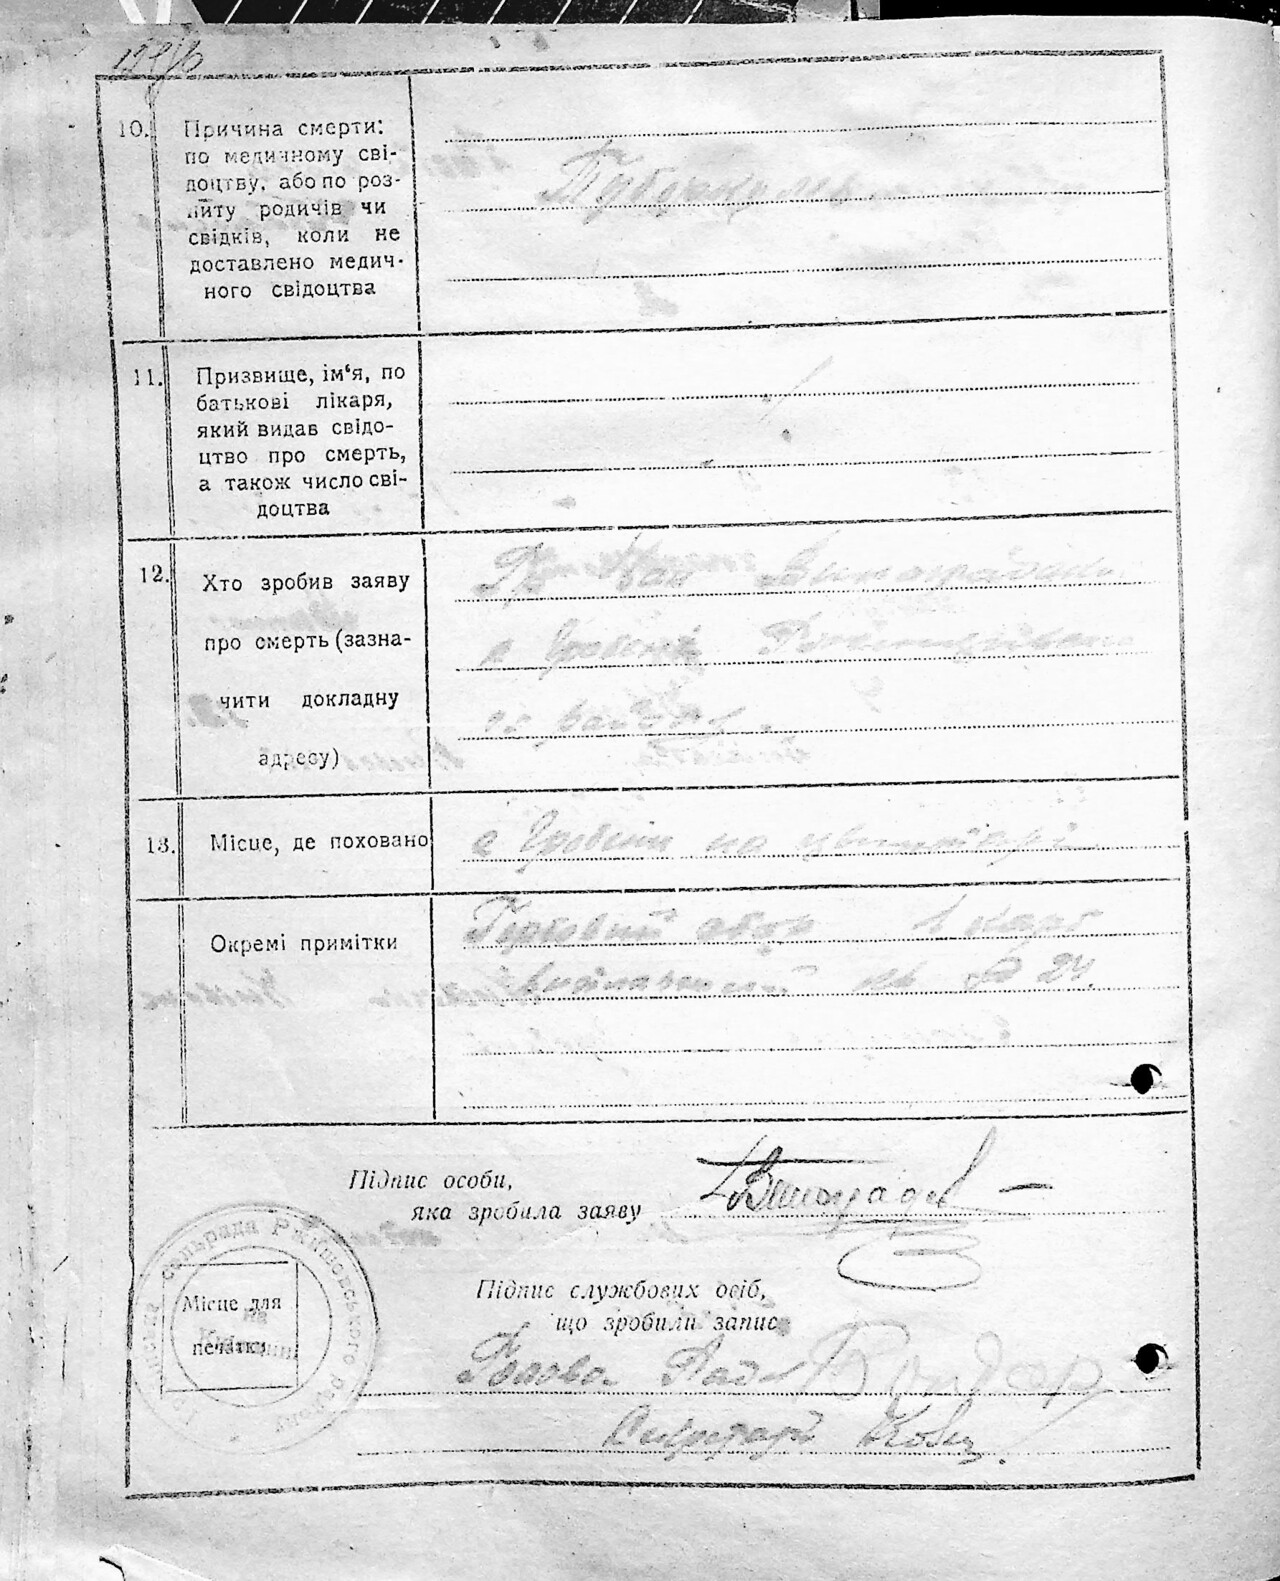 10. Причина смерти:
по медичному сві-
доцтву, або по роз-
питу родичів чи
свідків, коли не
доставлено медич-
ного свідоцтва
Туберкульоз
11. Призвище, ім‘я, по
батькові лікаря,
який видав свідо-
цтво про смерть,
а також число сві-
доцтва
12. Хто зробив заяву
про смерть (зазна-
чити докладну
адресу)
Гр Виноградський
с Гребені Ржищівського
району
13. Місце, де поховано
с Гребені на цвинтарі
Окремі примітки
Гербовий збір 1 карб
№ 24.
Підпис особи,
яка зробила заяву
Підпис службових осіб,
що зробили запис
Місце для
печатки
сільрада Ржищівського району
Голова Ради Бондар
Секретарь